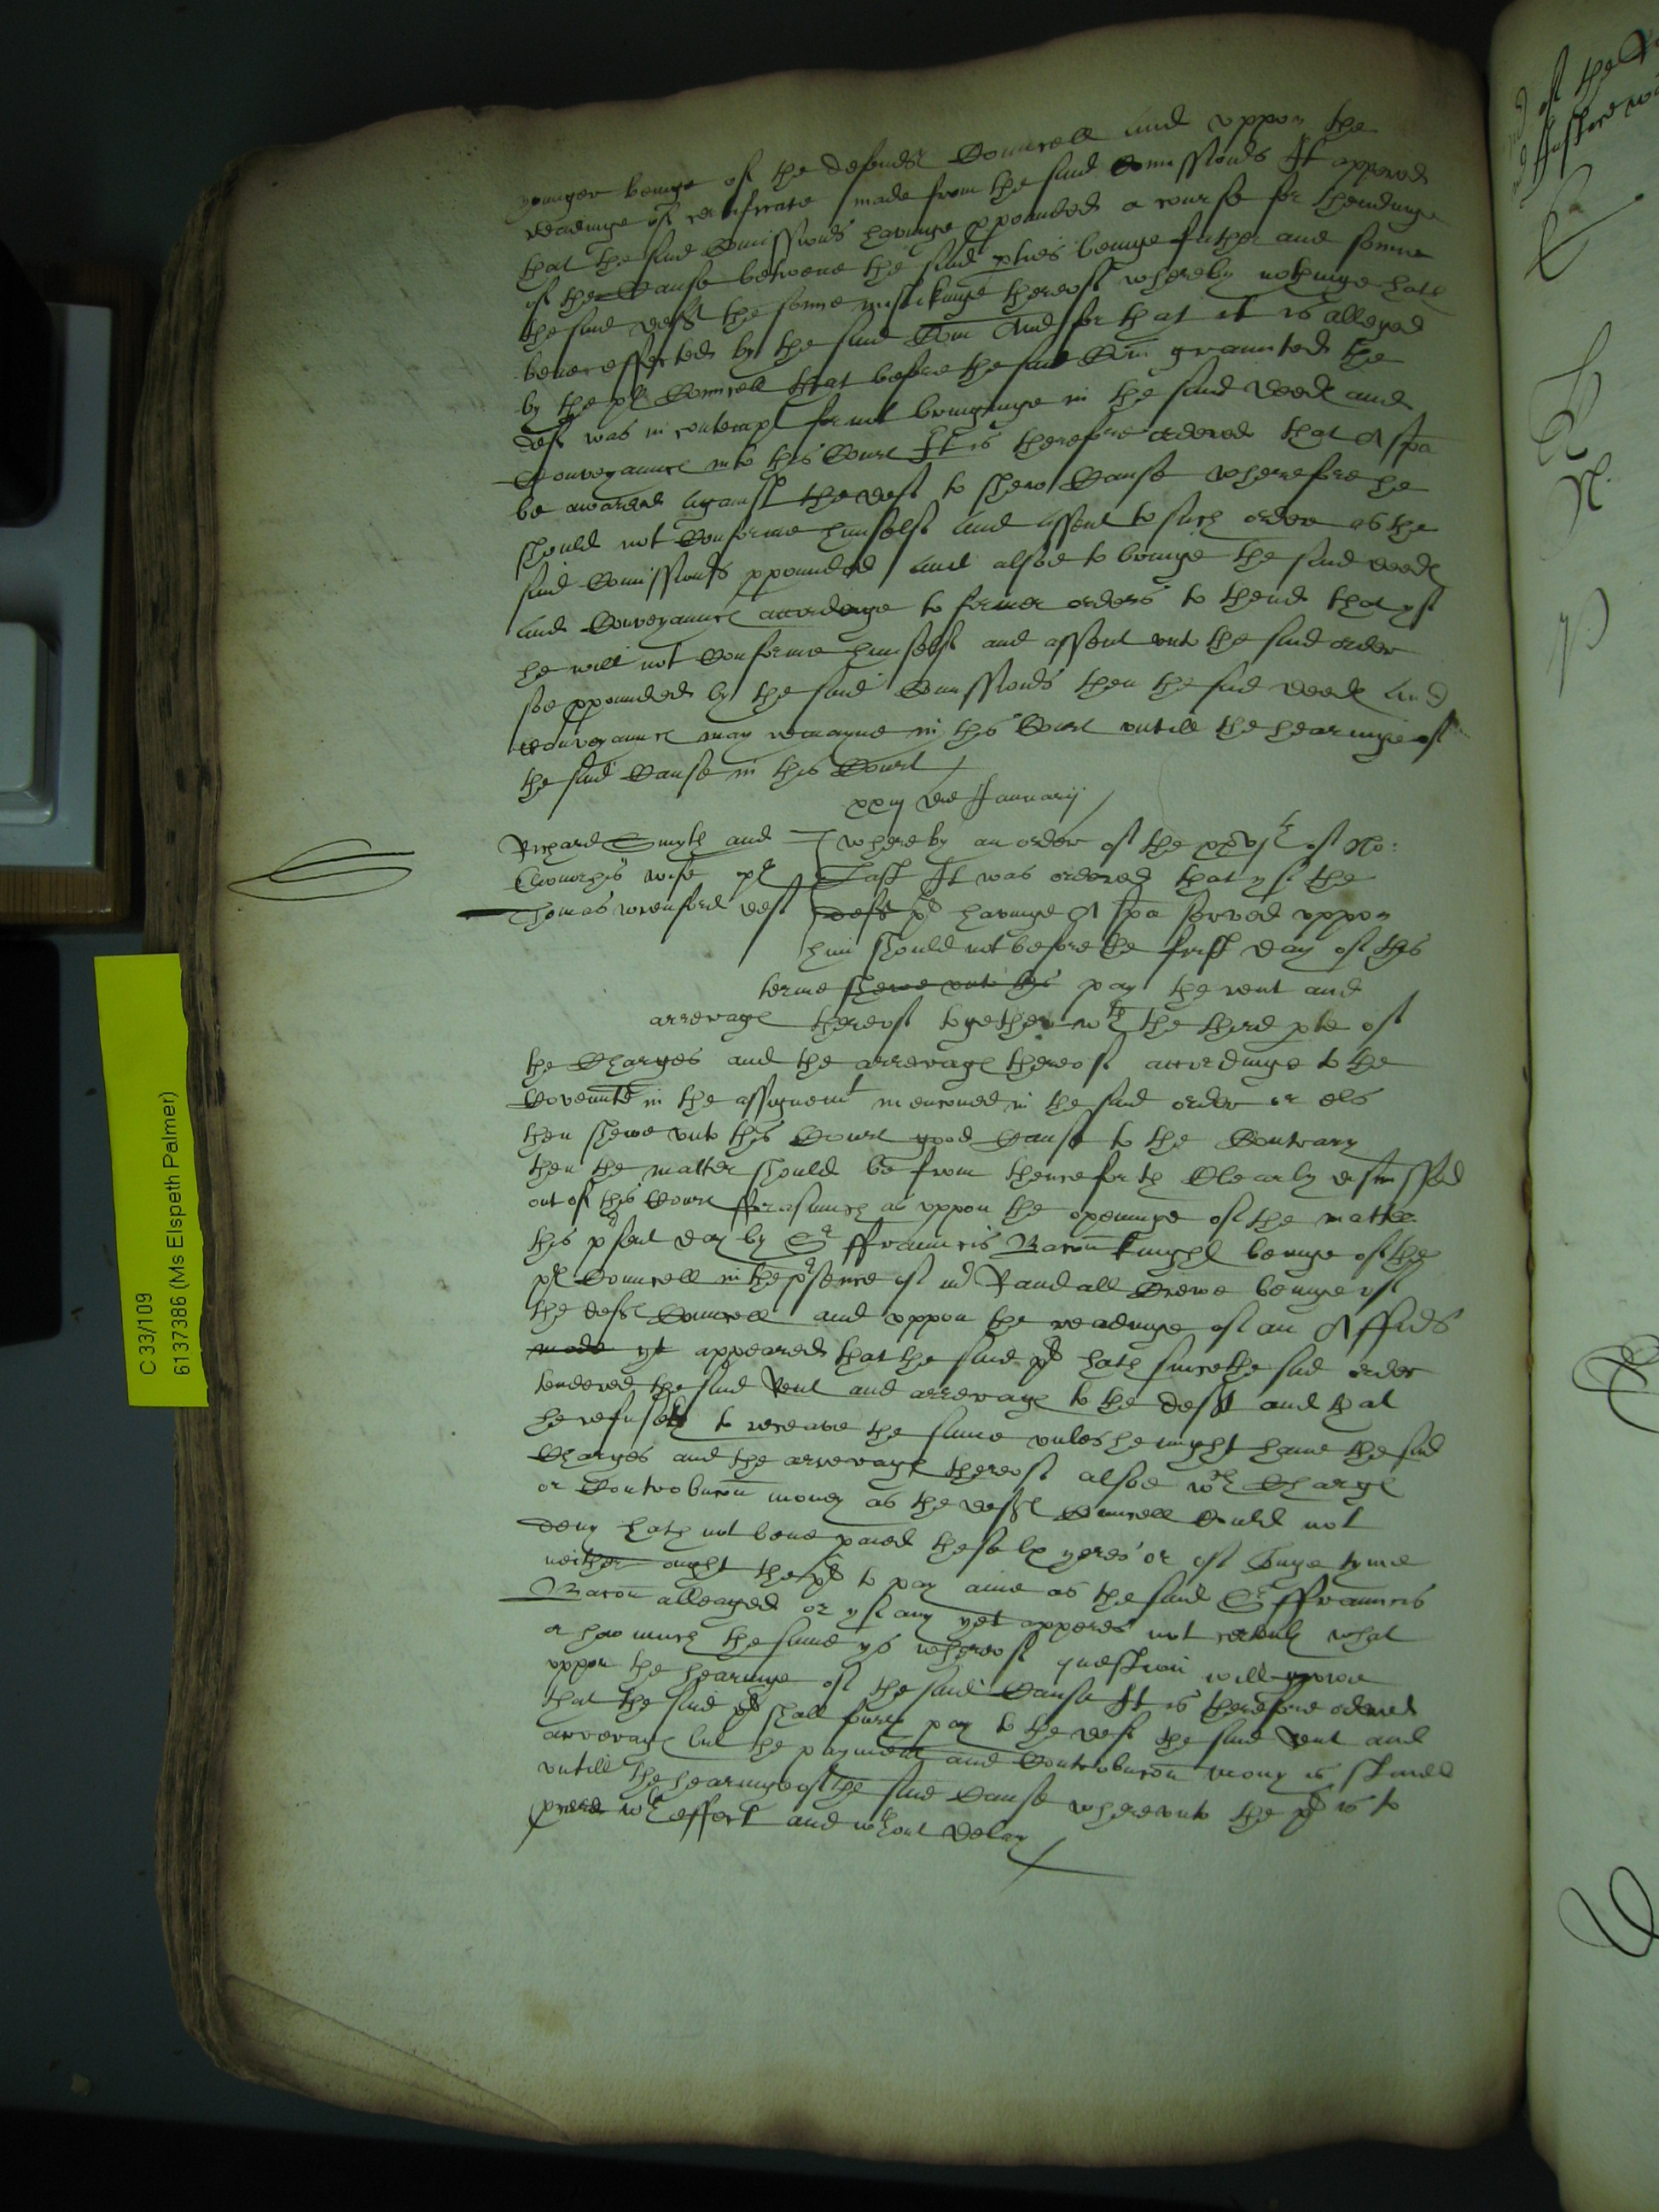 younger beinge of the defendt Councell and uppon the
readinge of certificate made from the said Comissions It appered
that the said Comissions havinge ppounded a course for thendinge
of the Cause betwene the said pties beinge father and sonne
the said deft the sonne mislikinge thereof whereby nothinge hath
bene effected by the said Com And for that it is alleged
by the pl Councell that before the said Com graunted the
deft was in contempt for not bringinge in the said deed and
Conveyaunce into this Court It is therefore ordered that A spa
be awarded against the deft to shew Cause wherefore he
should not Conforme himselfe and assent to such order as the
said Comissions ppounded and alsoe to bringe the said deed
and Conveyaunce accordinge to former orders to thend that yf
he will not Conforme himselfe and assent unto the said order
soe ppounded by the said Comissions then the said deed and
Conveyaunce may remayne in this Court untill the hearinge of
the said Cause in this Court
xxiij die January
Richard Smyth and whereby an order of the of No:
his wife pl Last It was ordered that yf the
Thomas wrenford deft deft pl havinge A spa served uppon
him should not before the first day of this
terme shewe unto this pay the rent and
arrerage thereof together wth the third pte of
the Charges and the arrerage thereof accordinge to the
Covennte in the assignemt mencioned in the said order or els
then shewe unto this Court good Cause to the Contrary
then the matter should be from thenceforth Clearly dismissed
out of this Court fforasmuch as uppon the openinge of the matter
this psent day by Sr ffrauncis Bacon knight beinge of the
pl Councell in the psence of mr Randall Crewe beinge of
the deft Councell and uppon the readinge of an Affid
made yt appeared that the said pl hath since the said order
tendered the said Rent and arrerage to the deft and that
he refuseth to receave the same unles he might have the said
Charges and the arrerage thereof alsoe wch Charge
or Contribucon money as the deft Councell Could not
deny hath not bene paied these lx yeres or of longe tyme
neither ought the pl to pay anie as the said Sr ffrauncis
Bacon alleaged or yf any yet apperes not certenly what
or how much the same ys whereof question will growe
uppon the hearinge of the said Cause It is therefore ordered
that the said pl shall pay to the deft the said Rent and
arrerage but the payment and Contribucon mony is stayed
untill the hearinge of the said Cause whereunto the pl is to
pceed wth effect and wthout delay
C 33/109
6137386 (Ms Elspeth Palmer)